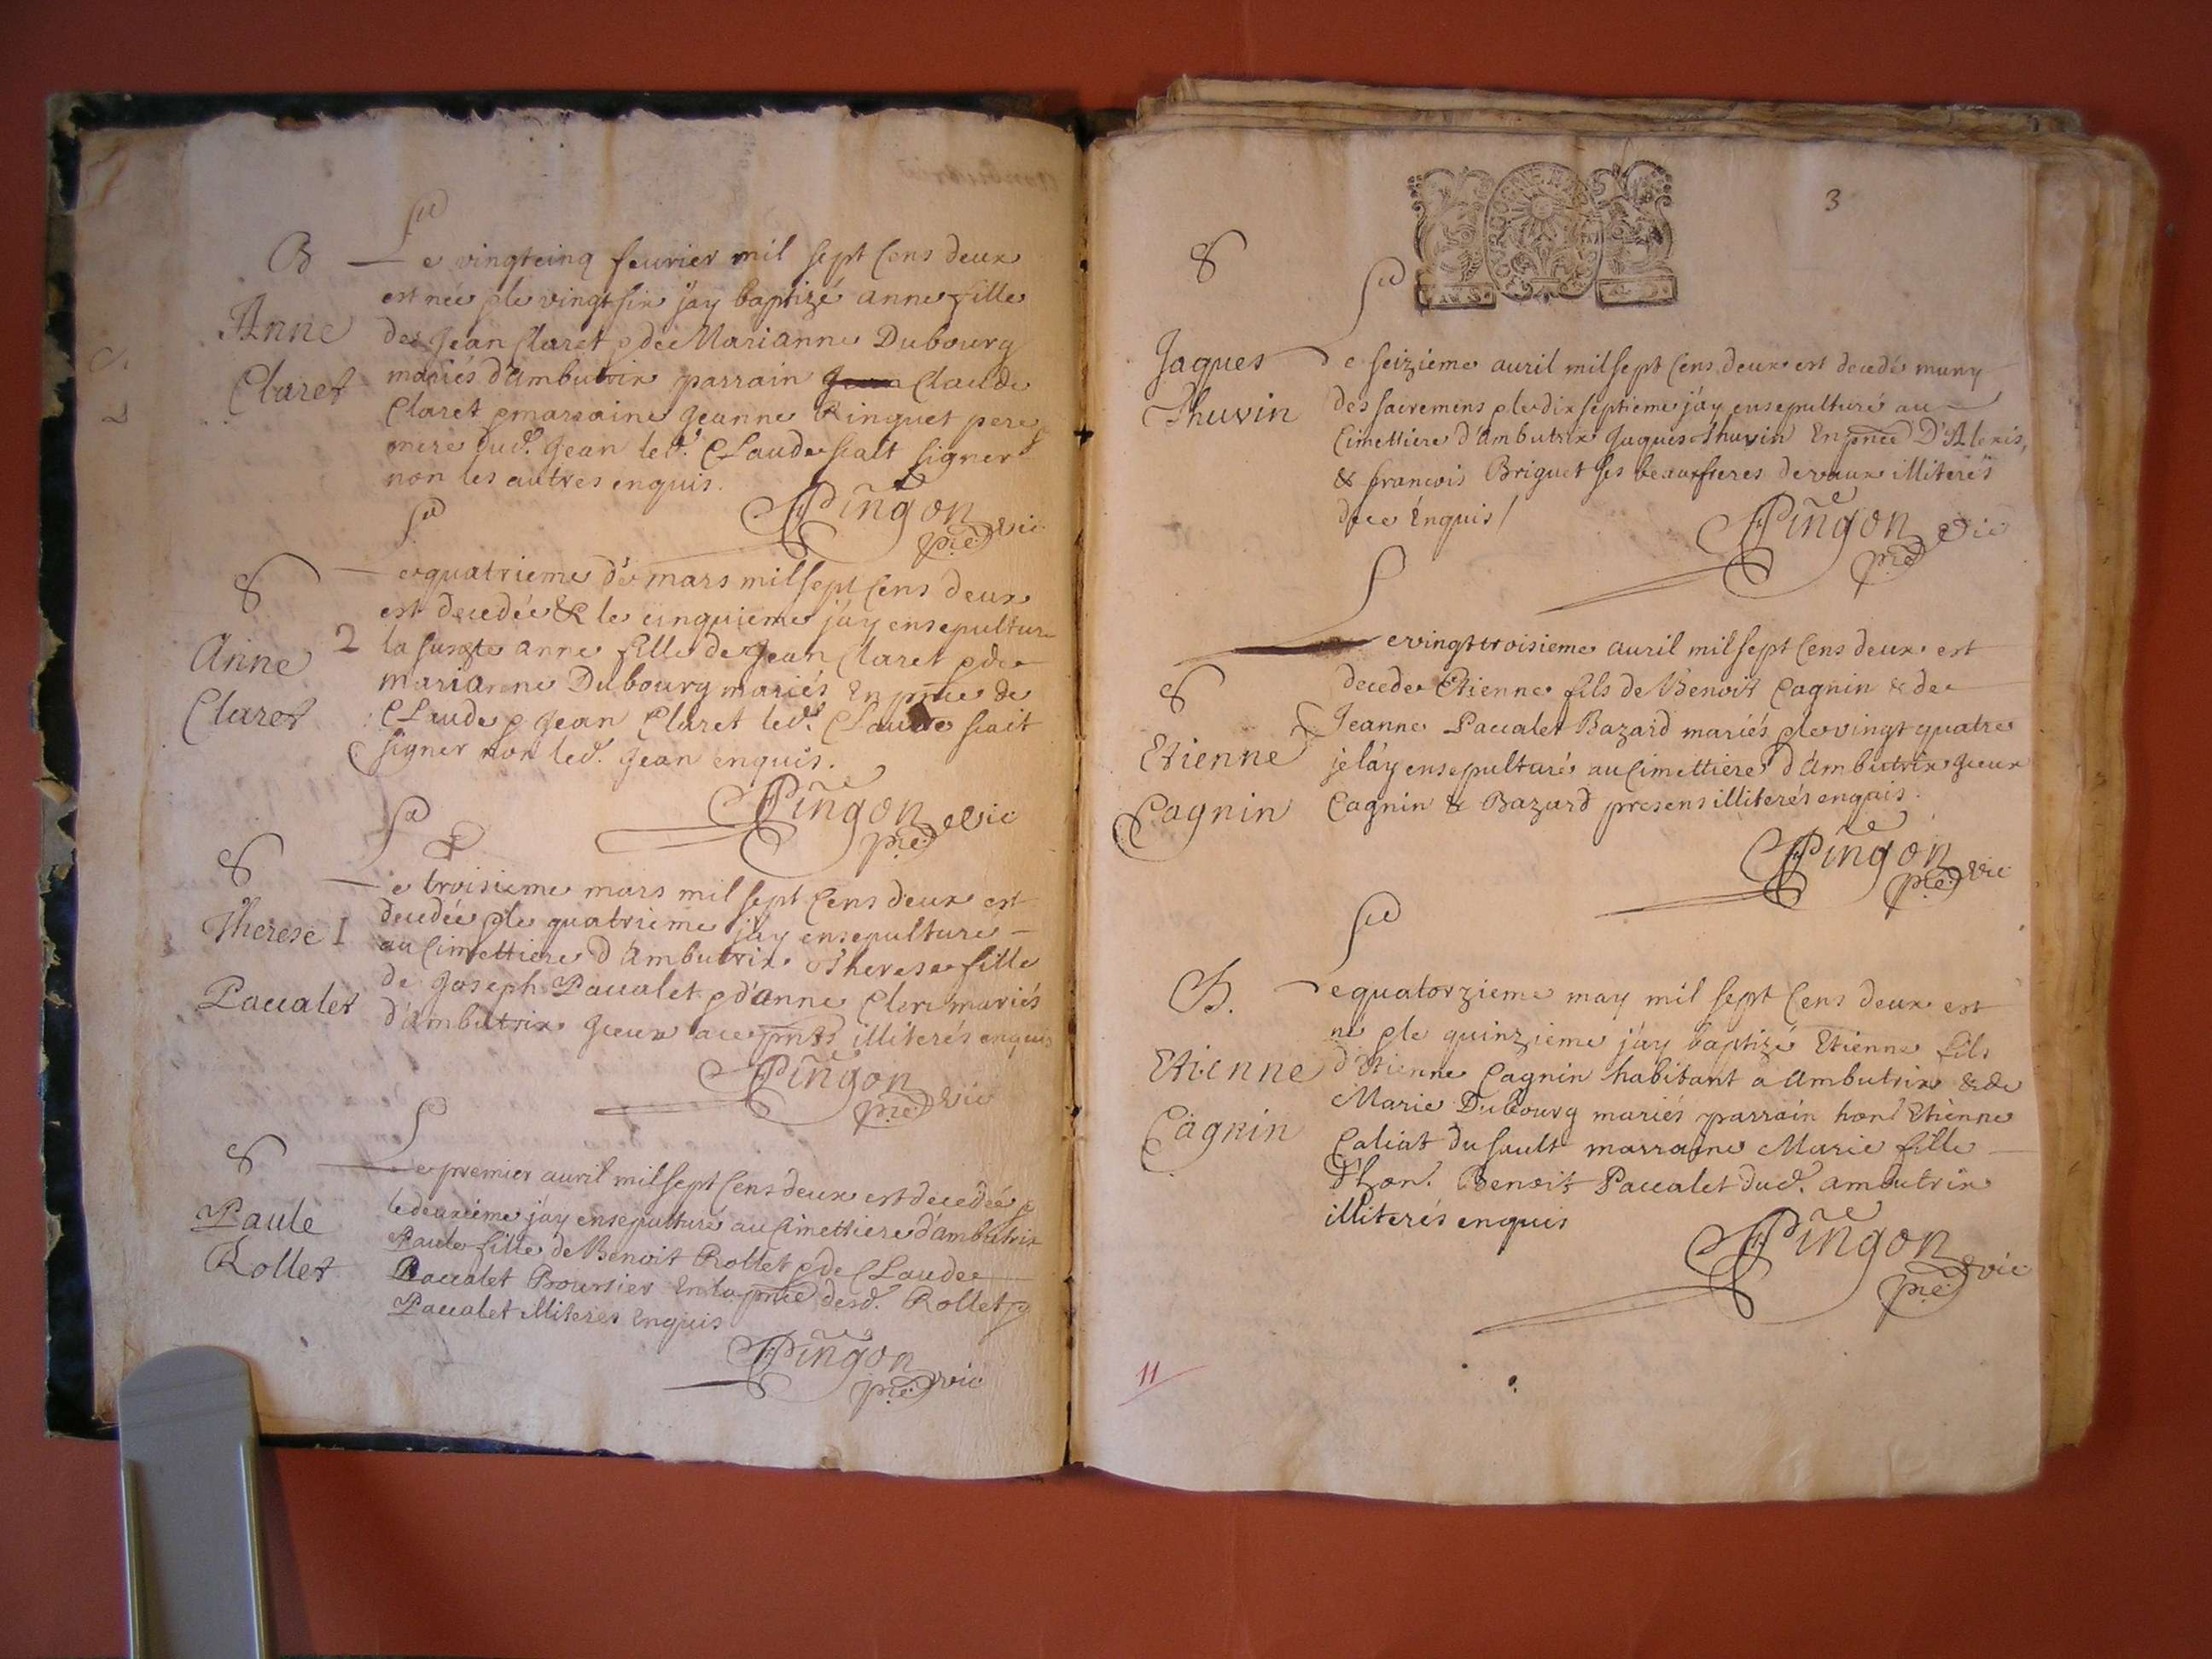 B
Anne
Claret
Le vingtcinq feurier mil sept Cens deux
est née & le vingt six j'ay baptizé anne fille
de Jean Claret & de Marianne Dubourg
mariés d'Ambutrix parrain Claude
Claret & marraine Jeanne Ringuet pere &
mere dud. Jean led. Claude scait signer
non les autres enquis.
Pingon
pre vic
S
Anne
Claret
2
Le quatrieme de mars mil sept Cens deux
est decedée & le cinquieme j'ay ensepulture
la susdte anne fille de Jean Claret & de
marianne Dubourg mariés En pnce de
Claude & Jean Claret led. Claude scait
signer non led. Jean enquis.
Pingon
pre vic
S
Therese 1
Paccalet
Le troisieme mars mil sept Cens deux est
decedée & le quatrieme j'ay ensepulture
au Cimettiere d'Ambutrix Therese fille
de Joseph Paccalet & d'anne Clerc mariés
d'Ambutrix Jceux a ce pnts illiterés enquis
Pingon
pre vic
S
Paule
Rollet
Le premier auril mil sept Cens deux est decedée &
le deuxieme j'ay ensepulturé au Cimettiere d'ambutrix
Paule fille de Benoit Rollet & de Claude
Paccalet Boursier En la pnce desd. Rollet &
Paccalet illiterés Enquis
Pingon
pre vic
3
S
Jaques
Thuvin
Le seizieme auril mil sept Cens deux est decedé muny
des sacremens & le dix septieme j'ay ensepulturé au
Cimettiere d'Ambutrix Jaques Thuvin En pnce D'Alexis,
& francois Briguet ses beaux freres de vaux illiterés
de ce Enquis /
Pingon
pre vic
S
Etienne
Cagnin
Le vingt troisieme auril mil sept Cens deux est
decede Etienne fils de Benoit Cagnin & de
Jeanne Paccalet Bazard mariés & le vingt quatre
je l'ay ensepulturé au Cimettiere d'Ambutrix Jceux
Cagnin & Bazard presens illiterés enquis.
Pingon
pre vic
B.
Etienne
Cagnin
Le quatorzieme may mil sept Cens deux est
né & le quinzieme j'ay baptizé Etienne fils
d'Etienne Cagnin habitant a Ambutrix & de
Marie Dubourg mariés parrain hon. Etienne
Caliat du sault marraine Marie fille
d'hon. Benoit Paccalet dud. ambutrix
illiterés enquis
Pingon
pre vic
11